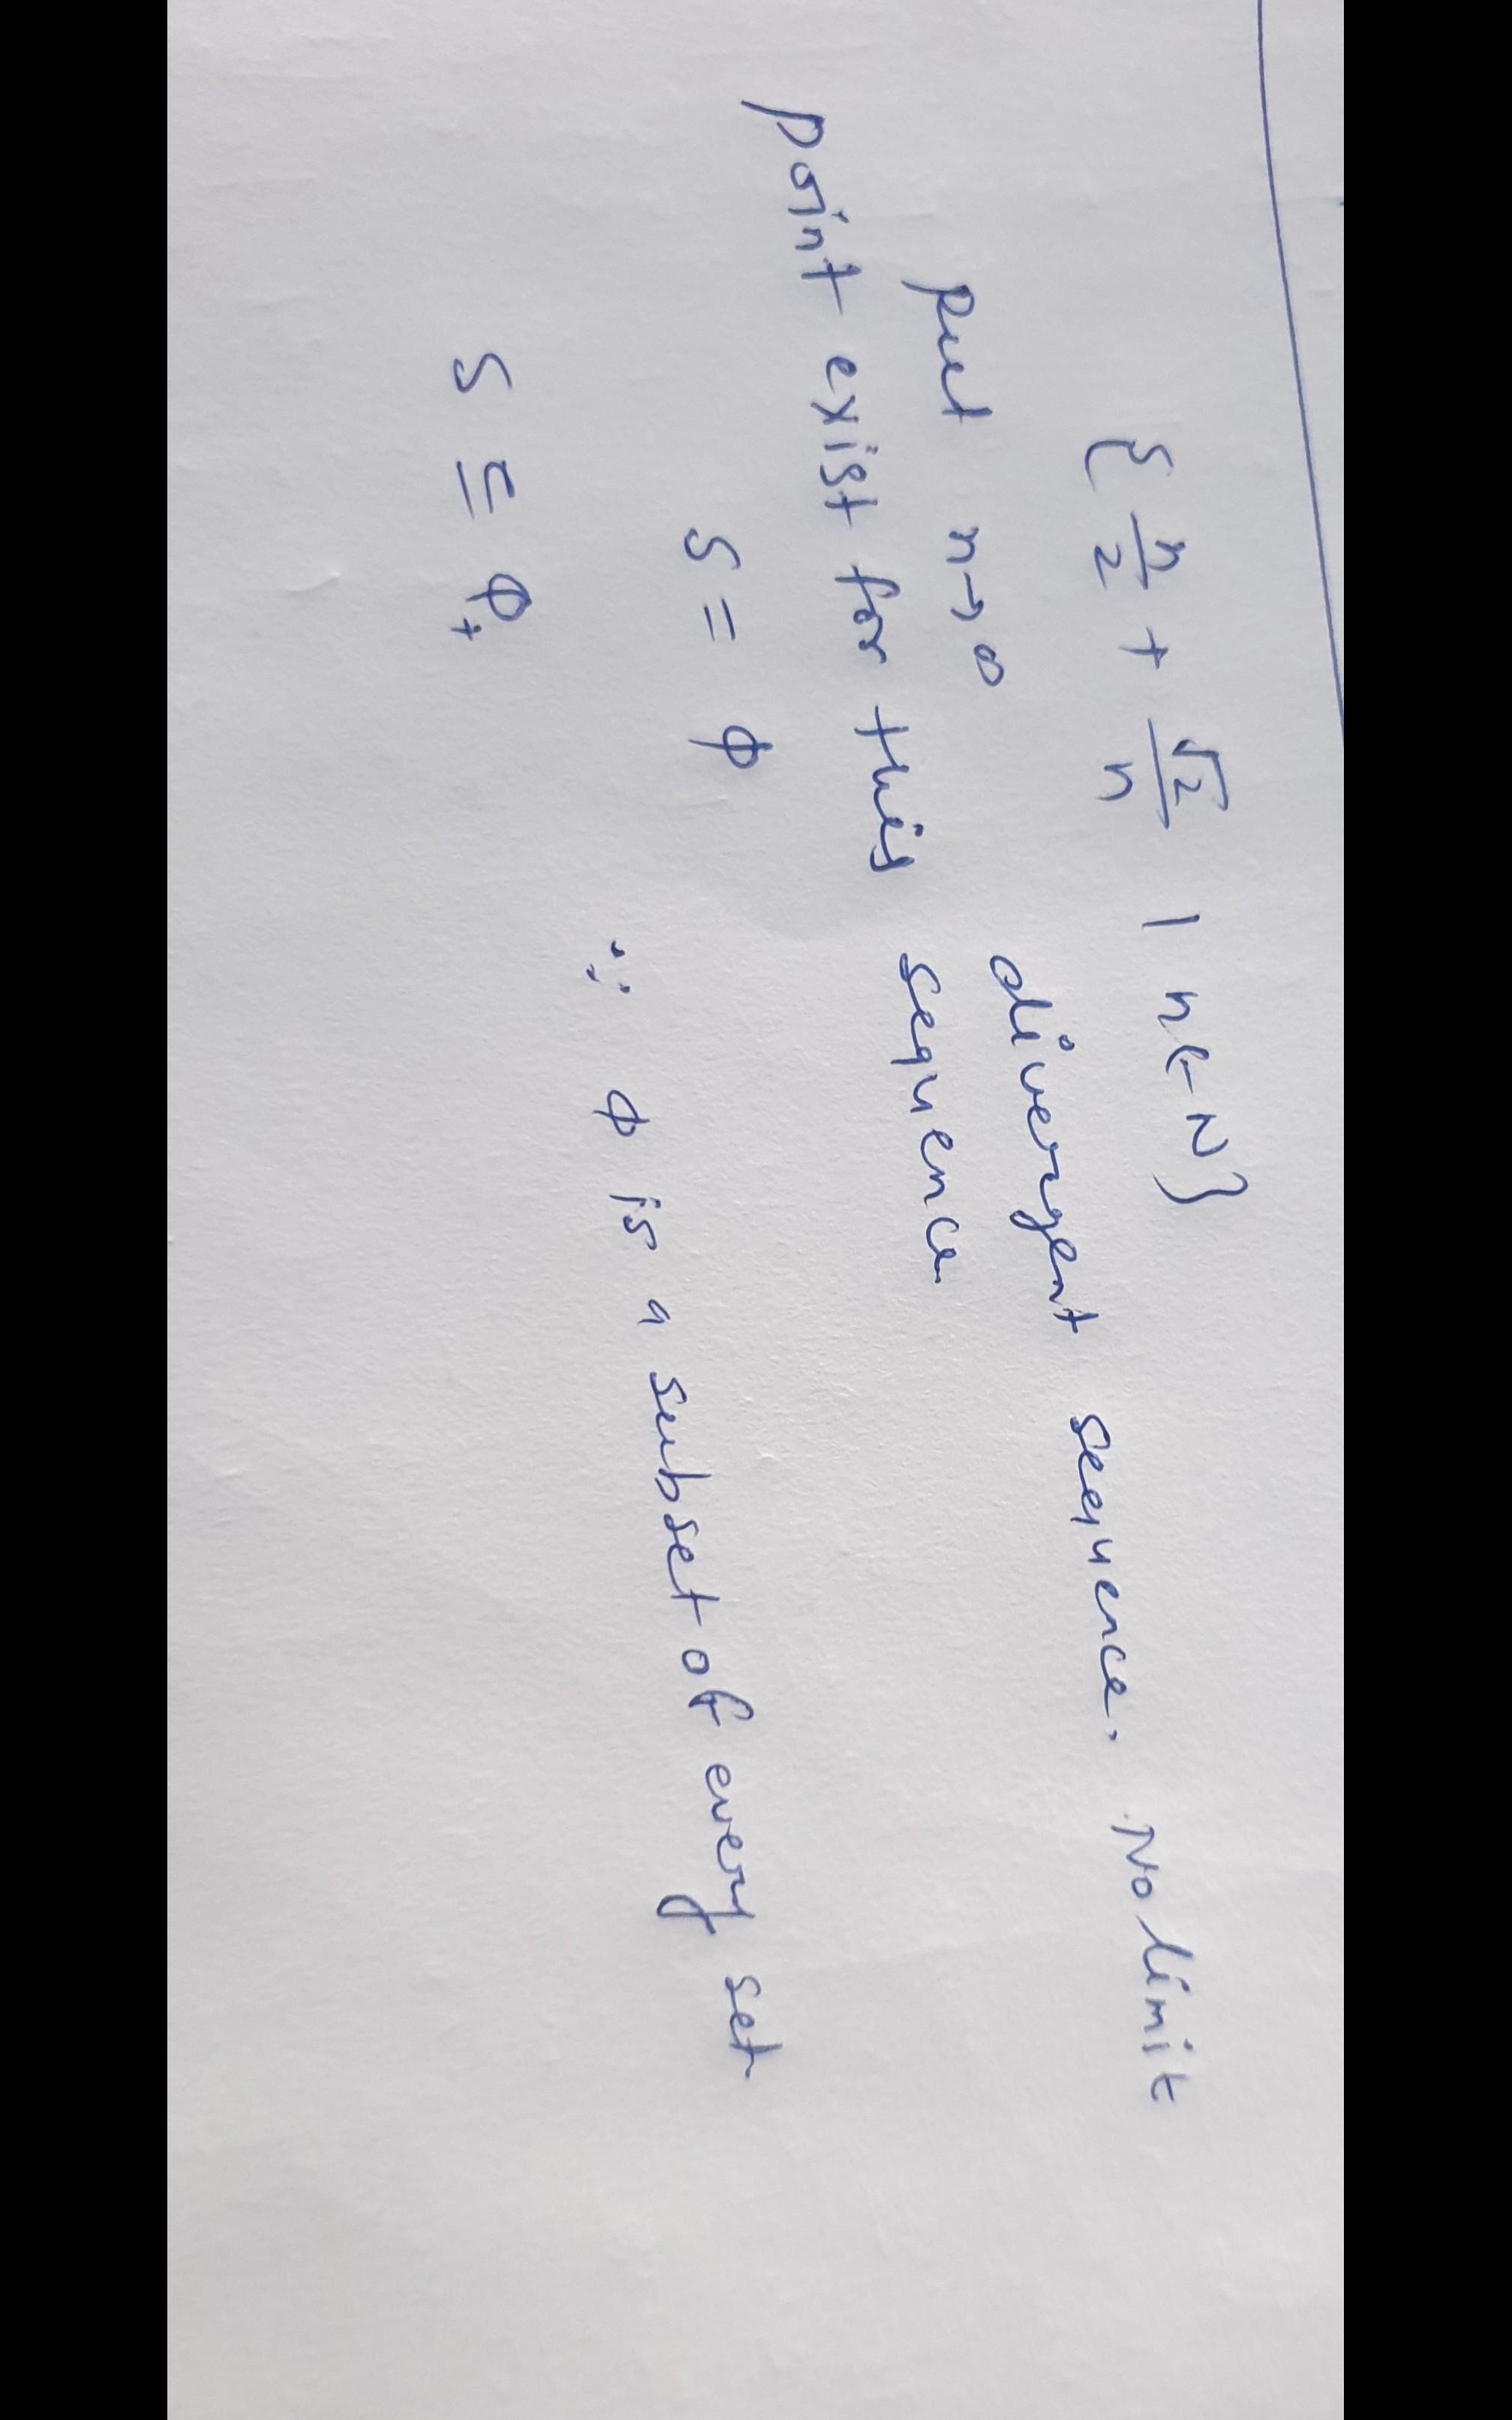 { n/2 + √2/n | n ∈ N}
put n→∞ divergent sequence. No limit
point exist for this sequence
S = ϕ
∵ ϕ is a subset of every set
S ⊆ ϕ+